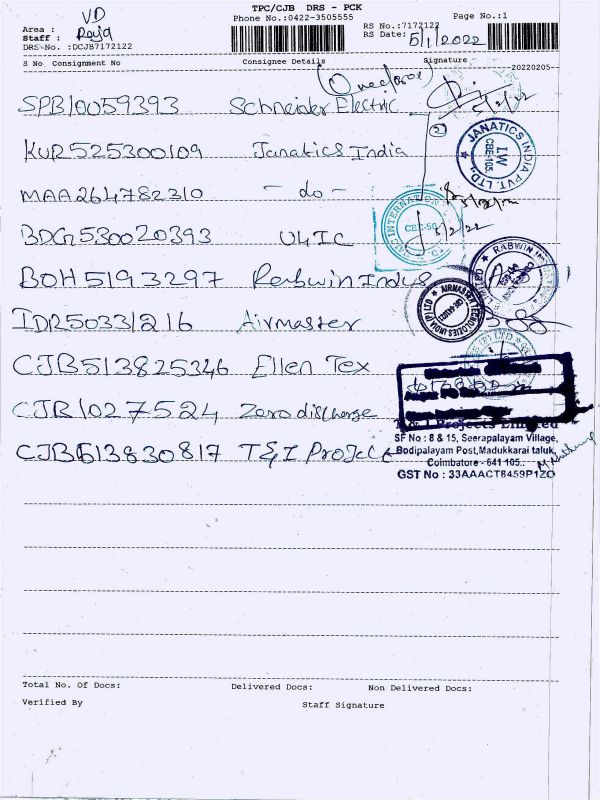 TPC/CJB DRS - PCK
Phone No.:0422-3505555
Page No.:1
Area : VD
Staff : Raja
DRS No. :DCJB7172122
RS No.:7172122
RS Date: 5/1/2022
S No Consignment No Consignee Details Signature 20220205
SPB10059393 Schneider Electric
KUR525300109 Janatics India
JANATICS INDIA PVT. LTD.,
IW
CBE-105.
MAA264782310 - do -
INTERNATIONAL
CBE-50
BDG530020393 U4IC
BOH5193297 Rabwin Indus
RABWIN
IDR50331216 Airmaster
AIRMASTER TECHNOLOGIES INDIA (P) LTD
CJB513825346 Ellen Tex
CJB1027524 Zero discharge
CJB513830817 T&I Project
Projects Limited
SF No : 8 & 15, Seerapalayam Village,
Bodipalayam Post, Madukkarai taluk,
Coimbatore - 641 105..
GST No : 33AAACT8459P1ZO
Total No. Of Docs: Delivered Docs: Non Delivered Docs:
Verified By Staff Signature